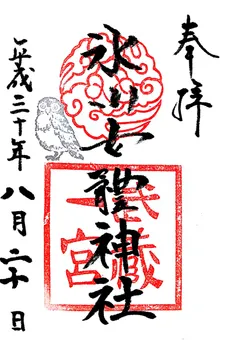 奉拝
氷川女體神社
武蔵
一宮
平成三十年八月二十日